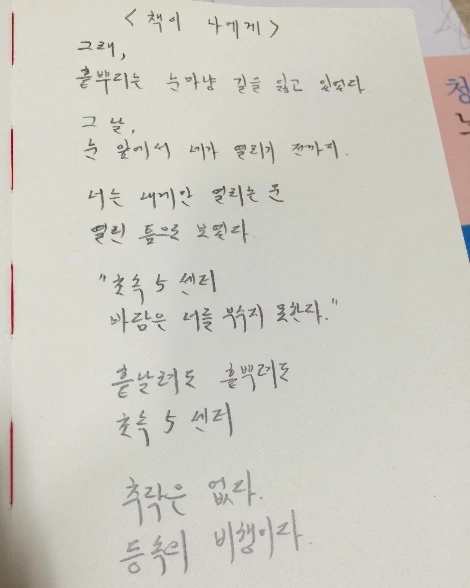 < 책이 나에게 >
그래,
흩뿌리는 눈마냥 길을 잃고 있었다
그 날,
눈 앞에서 네가 열리기 전까지.
너는 내게만 열리는 문
열린 틈으로 보였다.
"초속 5 센티
바람은 너를 부수지 못한다."
흩날려도 흩뿌려도
초속 5 센티
추락은 없다.
등속의 비행이다.
청